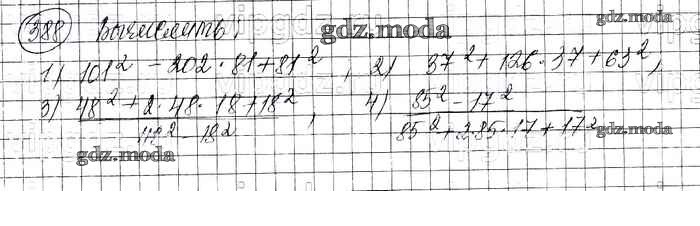 388 Вычислить: gdz.moda gdz.moda
1) 101² - 202·81+81², 2) 37² + 126·37+63²,
3) 48² + 2·48·18+18² , 4) 85² - 17²
48² - 18² 85² + 2·85·17 + 17² gdz.moda
gdz.moda